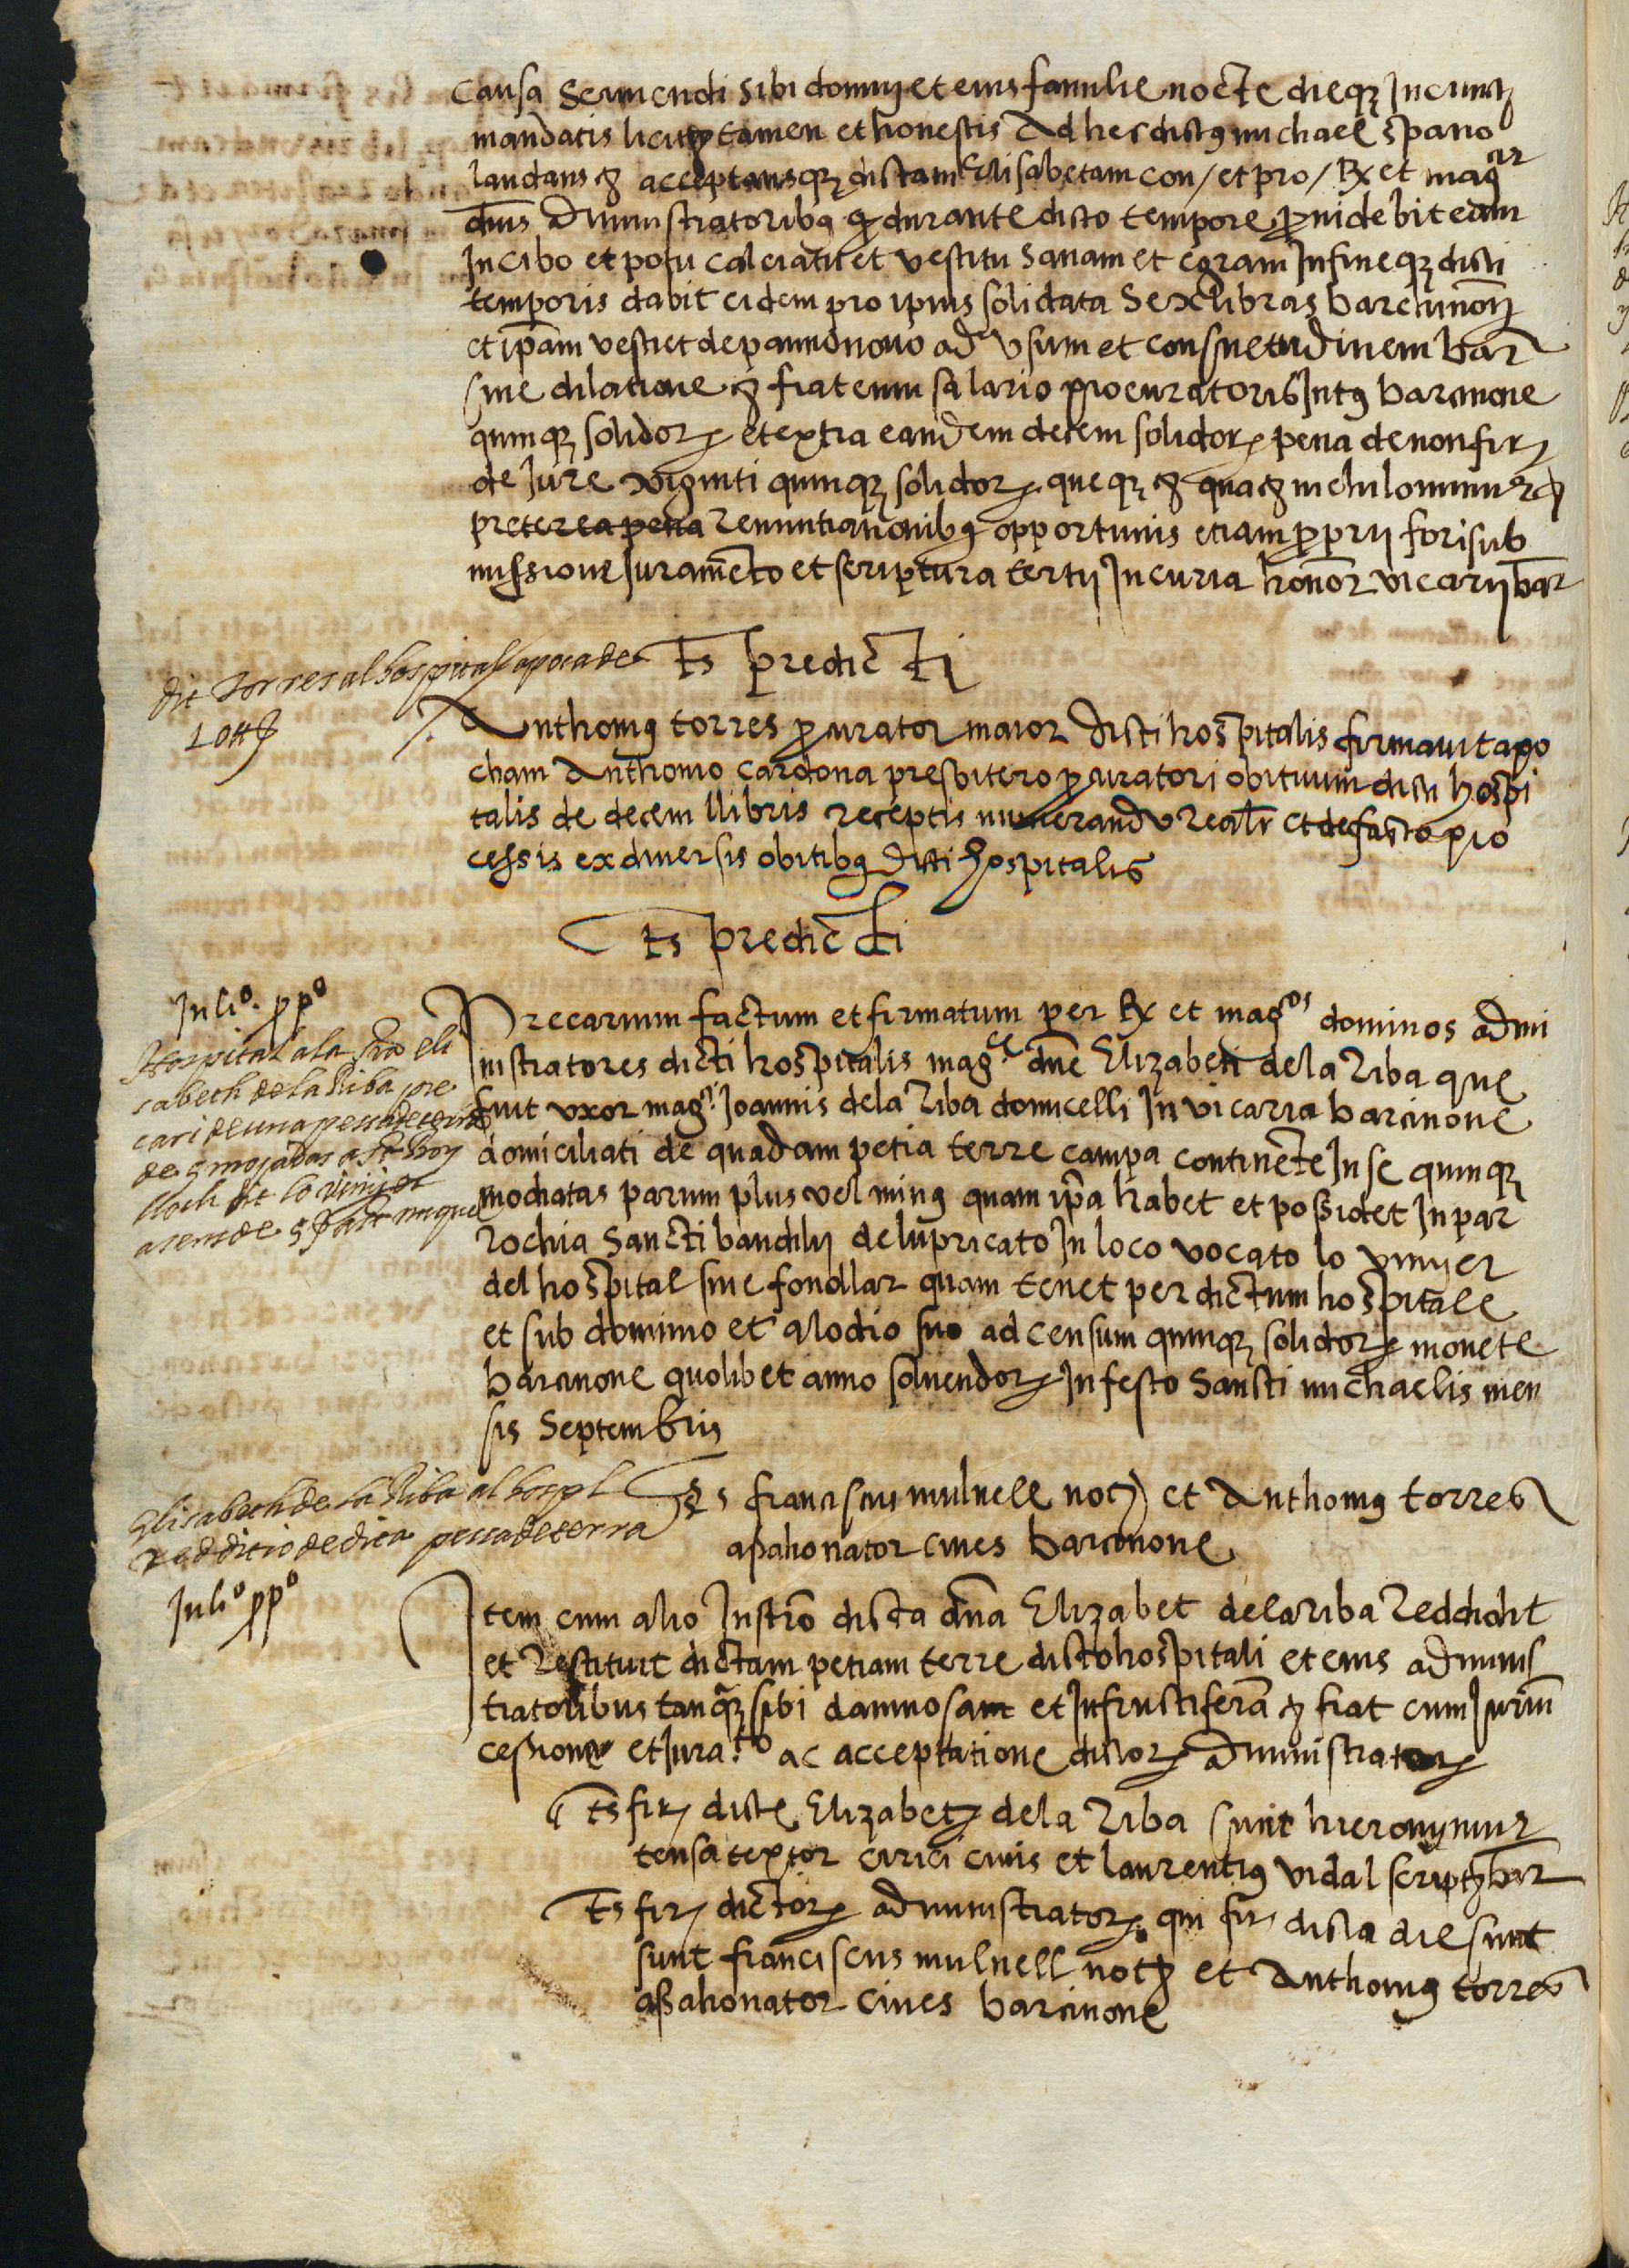 causa serviendi sibi domuy et eius familie nocte dieqz in cunctis
mandatis licitis tamen et honestis Ad hec dictus michael spano
laudans & acceptansqz dictam Elisabetam con / et pro / Rx et mag^cis
dnis Administratoribus q durante dicto tempore providebit eam
In cibo et potu calciatu et vestitu sanam et egram Infineqz dicti
temporis dabit eidem pro ipius solidata Sex libras barchinon
et ipam vestiet de panno novo ad usum et consuetudinem bar
sine dilatione & fiat cum salario procuratoris Intus barcinone
quinqz solidor et extra eandem decem solidor pena de non fir
de Jure viginti quinqz solidor queqz & qua & nichilominus
preterea pena renuntiationibus opportunis etiam proprii fori sub
missione Juramento et scriptura tertii In curia honor vicarii bar
Ts predicti
dit Torres al hospital apoca de
10 ℔
Anthonius torres procurator maior dicti hospitalis firmavit apo
cham Anthonio cardona presbitero procuratori obituum dicti hospi
talis de decem llibris receptis numerando realr et de facto pro
cessis ex diversis obitibus dicti hospitalis
Ts predicti
Julio. ppo
Hospital a la Sra eli
sabeth de la Riba pre
cari de una pessa de terra
de 5 mojadas a St Boy
lloch dit lo vinyer
a cens de 5 s a St miquel
Precarium factum et firmatum per Rx et mag^cos dominos admi
nistratores dicti hospitalis mag^ce dne Elizabeti dela riba que
fuit uxor mag^ci Joannis dela riba domicelli In vicaria barcinone
domiciliati de quadam petia terre campa continente In se quinqz
modiatas parum plus vel minus quam ipa habet et possidet In par
rochia Sancti baudilii de lupricato In loco vocato lo vinyer
del hospital sive fondlar quam tenet per dictum hospitale
et sub dominio et alodio suo ad censum quinqz solidor monete
barcinone quolibet anno solvendor In festo Sancti michaelis men
sis Septembris
Elisabeth de la Riba al hospl
redditio de dita pessa de terra
Julio ppo
Ts franciscus mulnell not et Anthonius torres
assahonator cives barcinone
Item cum alio Instro dicta dna Elizabet dela riba reddidit
et restituit dictam petiam terre dicto hospitali et eius adminis
tratoribus tanqz sibi damnosam et Infructifera & fiat cum Jurium
cessione et Jura.to ac acceptatione dictor Administrator
Ts fir dicte Elizabet dela riba sunt hieronymus
tensa textor cirici civis et laurentius vidal script bar
Ts fir dictor administrator qui fir dicta die sunt
sunt franciscus mulnell not et Anthonius torres
assahonator cives barcinone